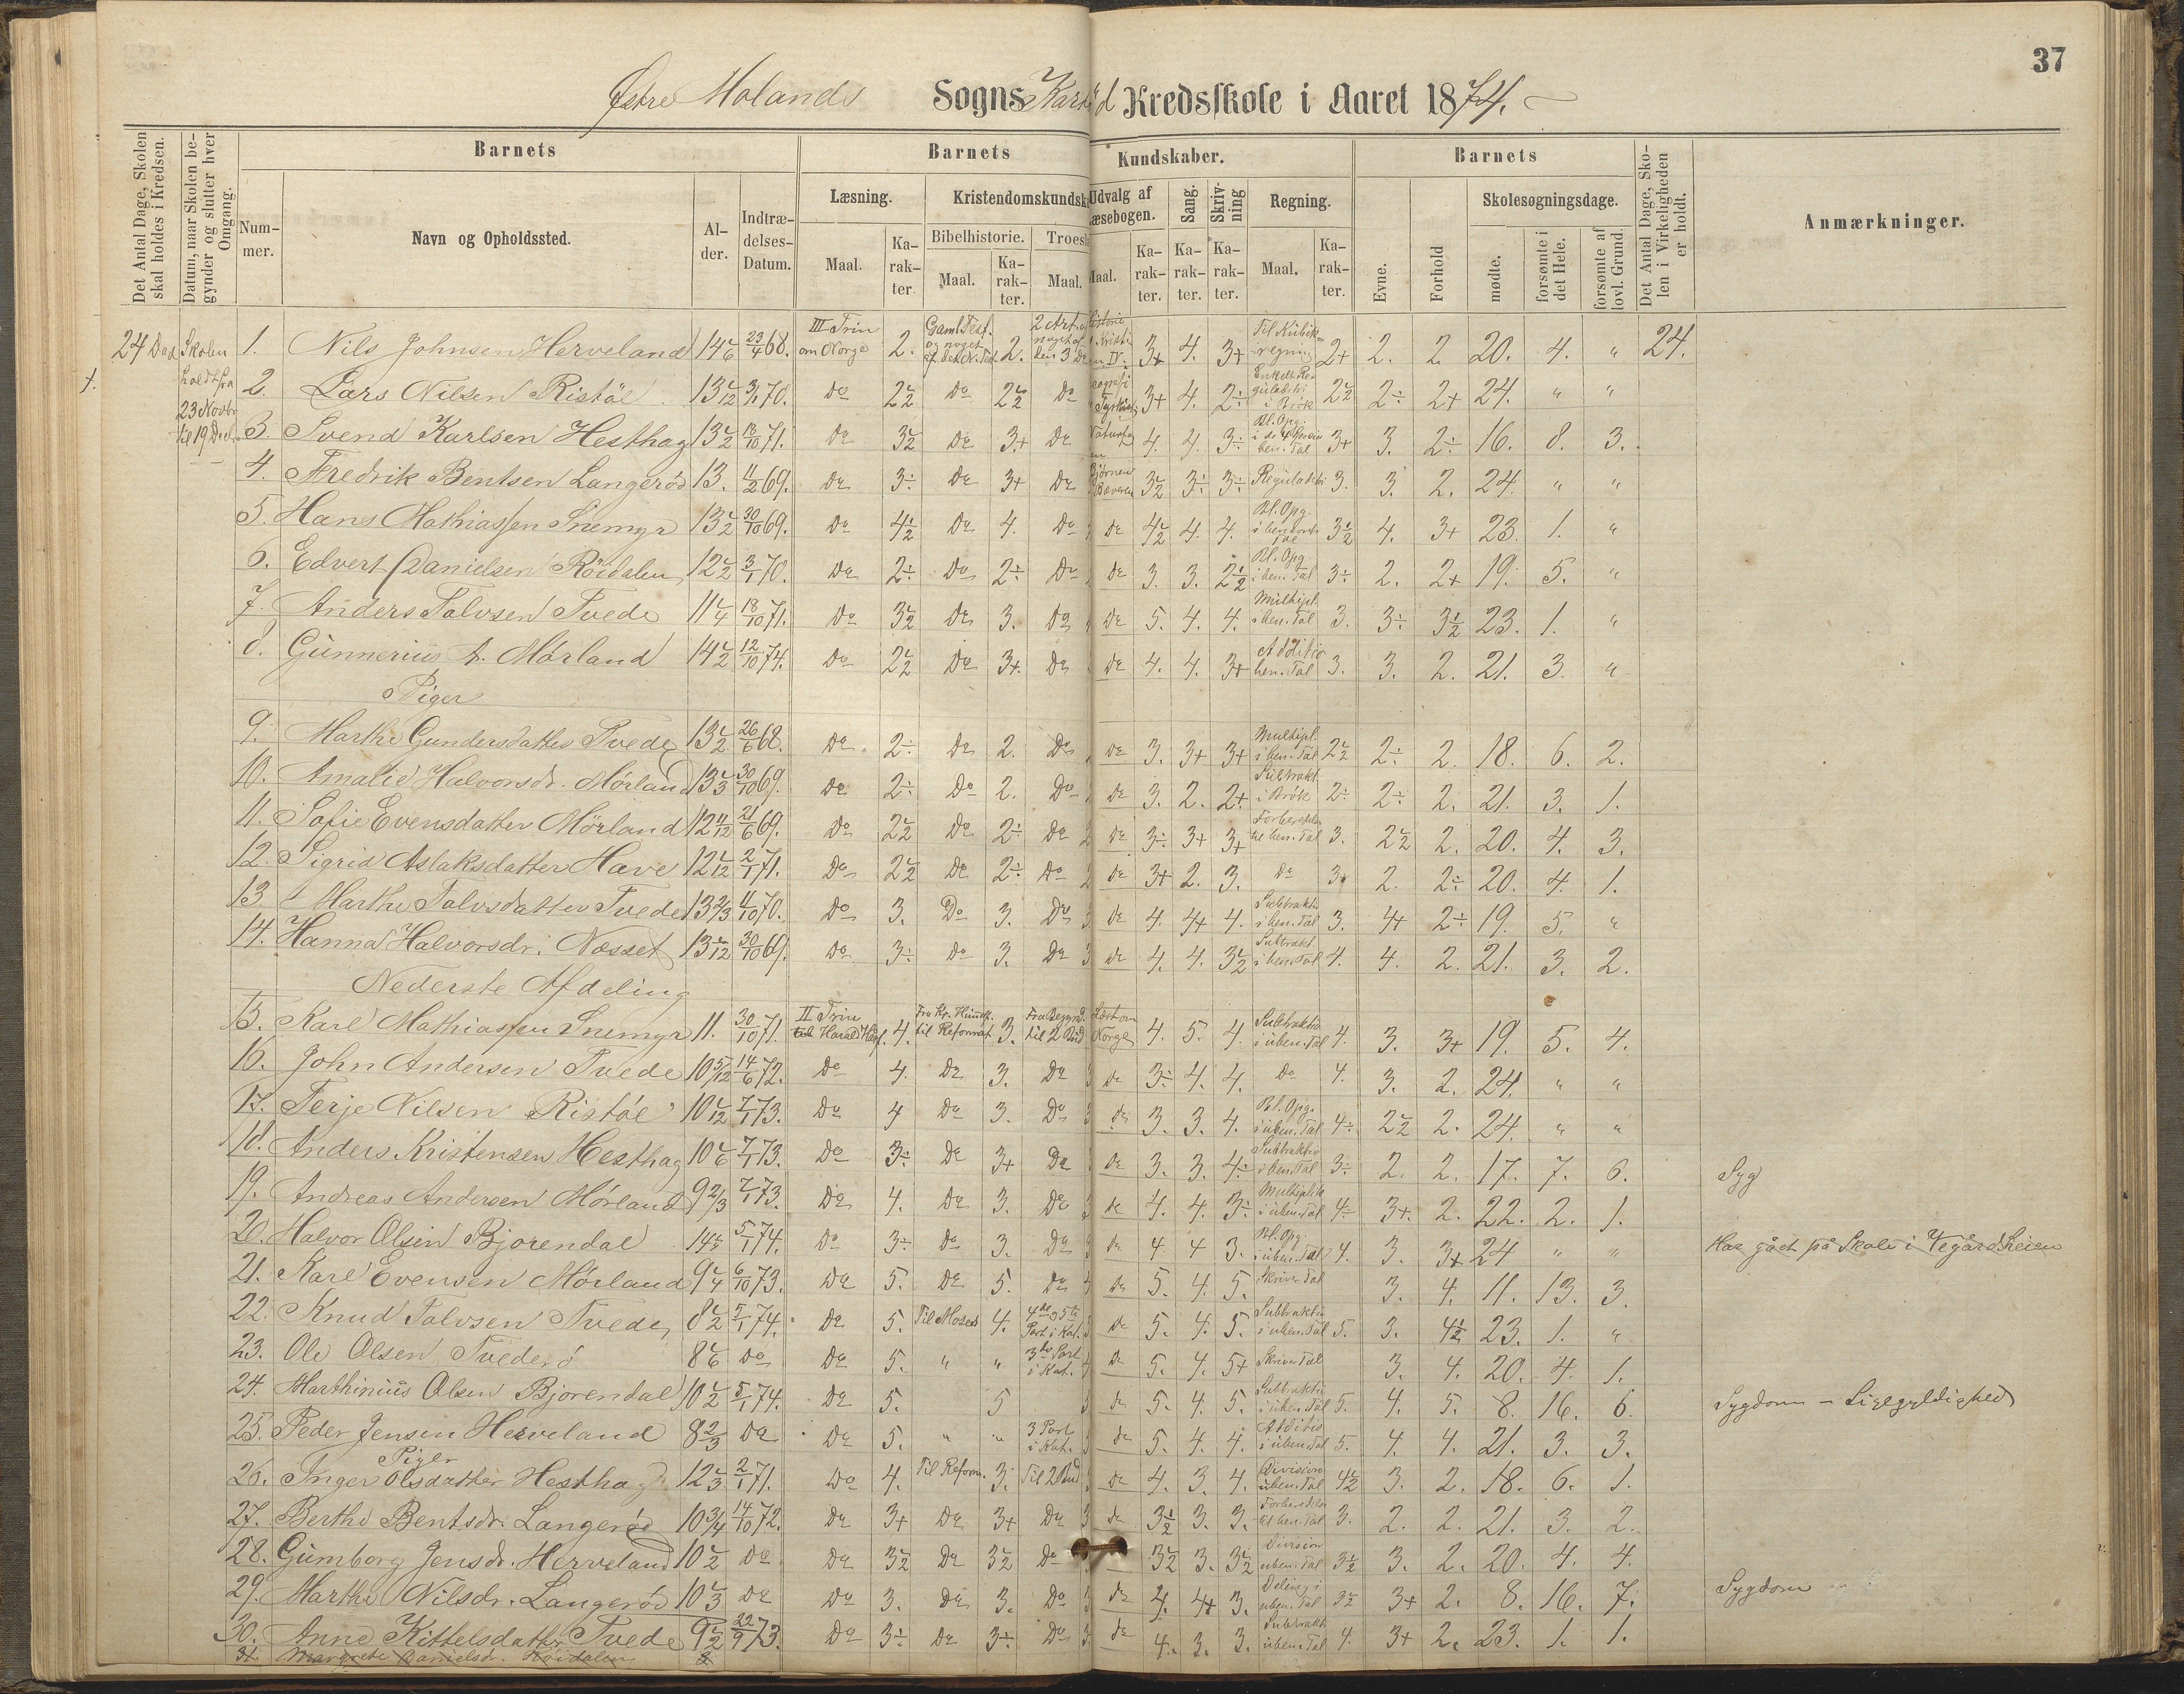 37
Østre Molands Sogns Karød Kredsskole i Aaret 1874.
Det Antal Dage, Skolen skal holdes i Kredsen.
Datum, naar Skolen begynder og slutter hver Omgang.
Barnets
Nummer.
Navn og Opholdssted.
Alder.
Indtrædelses-Datum.
Barnets Kundskaber.
Læsning.
Maal.
Karakter.
Kristendomskundsk
Bibelhistorie.
Maal.
Karakter.
Troesl
Maal.
Udvalg af Læsebogen.
Maal.
Karakter.
Sang.
Karakter.
Skrivning
Karakter.
Regning.
Maal.
Karakter.
Barnets
Evne.
Forhold
Skolesøgningsdage.
mødte.
forsømte i det Hele.
forsømte af lovl. Grund.
Det Antal Dage, Skolen i Virkeligheden er holdt.
Anmærkninger.
24 Dage
Skolen holdt fra 23 Novbr til 19 Decbr
1. Nils Johnsen Herveland 14 1/6 23/4 68. III Trin om Norge 2. Gaml. Test. og noget af det N. Test. 2. 3+ 4. 3+ Til Kubikregning 2+ 2. 2 20. 4. " 24.
2. Lars Nilsen Ristøl 13 1/12 3/1 70. Do 2 1/2 Do 2 1/2 Do 3+ 4. 2÷ Enkelt Reguladetri i Brök 2 1/2 2÷ 2+ 24. " "
3. Svend Karlsen Hesthag 13 1/2 18/10 71. Do 3 1/2 Do 3+ Do 4. 4. 3÷ 3+ 3. 2÷ 16. 8. 3.
4. Fredrik Bentsen Langerød 13. 11/2 69. Do 3÷ Do 3+ Do Bjørnen Bæveren 3 1/2 3÷ 3÷ Reguladetri 3. 3. 2. 24. " "
5. Hans Mathiassen Snemyr 13 1/2 30/10 69. Do 4 1/2 Do 4. Do Do 4 1/2 4. 4. 3 1/2 4. 3+ 23. 1. "
6. Edvert Danielsen Röidalen 12 1/2 3/1 70. Do 2÷ Do 2÷ Do Do 3. 3. 2 1/2 Bl. Opg i ben. Tal 3÷ 2. 2+ 19. 5. "
7. Anders Talvsen Tvede 11 1/4 18/10 71. Do 3 1/2 Do 3. Do Do 5. 4. 4. Multipl. i ben. Tal 3. 3÷ 3 1/2 23. 1. "
8. Gunnerius A. Mörland 14 1/2 12/10 74. Do 2 1/2 Do 3+. Do Do 4. 4. 3+ Additio ben. Tal 3. 3. 2. 21. 3. "
Piger
9. Marthe Gundersdatter Tvede 13 1/2 26/6 68. Do 2÷ Do 2. Do Do 3. 3+ 3+ Multipl. i ben. Tal 2 1/2 2÷ 2. 18. 6. 2.
10. Amalie Halvorsdr. Mörland 13 1/3 30/10 69. Do 2÷ Do 2. Do Do 3. 2. 2+ Subtrakt. i Brök 2÷ 2÷ 2. 21. 3. 1.
11. Sofie Evensdatter Mörland 12 11/12 21/6 69. Do 2 1/2 Do 2÷ Do Do 3÷ 3+ 3+ Forberedelse til ben. Tal 3. 2 1/2 2. 20. 4. 3.
12. Sigrid Aslaksdatter Have 12 1/12 2/1 71. Do 2 1/2 Do 2÷ Do Do 3+ 2. 3. Do 3. 2. 2÷ 20. 4. 1.
13. Marthe Talvsdatter Tvede 13 2/3 11/10 70. Do 3. Do 3. Do Do 4. 4+ 4. Subtraktio i ben. Tal 3. 4+ 2÷ 19. 5. "
14. Hanna Halvorsdr. Næsset 13 1/12 30/10 69. Do 3÷ Do 3. Do Do 4. 4. 3 1/2 Subtrakt. i ben. Tal 4. 4. 2. 21. 3. 2.
Nederste Afdeling
15. Karl Mathiassen Snemyr 11. 30/10 71. II Trin til Harald Haarf. 4. Fra Kr. Himelf. til Reformat 3. Fra Begynd. til 2 Bud Læst om Norge 4. 5. 4. Subtraktio i uben. Tal 4. 3. 3+ 19. 5. 4.
16. John Andersen Tvede 10 5/12 14/6 72. Do 4. Do 3. Do Do 3÷ 4. 4. Do 4. 3. 2. 24. " "
17. Terje Nilsen Ristøl 10 1/12 7/1 73. Do 4 Do 3. Do Do 3. 3. 4. Bl. Opg. i uben. Tal 4÷ 2 1/2 2. 24. " "
18. Anders Kristensen Hesthag 10 1/6 7/1 73. Do 3÷ Do 3+ Do Do 3. 3. 4÷ Subtraktio i ben. Tal 3÷ 2. 2. 17. 7. 6. Syg
19. Andreas Andersen Mörland 9 2/3 7/1 73. Do 4. Do 3. Do Do 4. 4. 3÷ Multiplik i uben. Tal 4÷ 3+. 2. 22. 2. 1.
20. Halvor Olsen Bjorendal 14 1/2 5/1 74. Do 3÷ Do 3. Do Do 4 4 3. Bl. Opg. i uben. Tal 4. 3. 3+ 24 " " Har gået på Skole i Vegårdsheien
21. Karl Evensen Mörland 9 1/4 6/10 73. Do 5. Do 5. Do Do 5. 4. 5. Skriver Tal 3. 4. 11. 13. 3.
22. Knud Talvsen Tvede 8 1/2 5/1 74. Do 5. Til Moses 4. 4de og 5te Part i Kat. Do 5. 4. 5. Subtraktio i uben. Tal 5. 3. 4 1/2 23. 1. "
23. Ole Olsen Tvede 8 1/6 Do Do 5. " " 3die Part i Kat. Do 5. 4. 5+ Skriver Tal 3. 4. 20. 4. 1.
24. Marthinius Olsen Bjorendal 10 1/2 5/1 74. Do 5. 5 Do 5. 4. 5. Subtraktio i uben. Tal 5. 4. 5. 8. 16. 6. Sygdom - Ligegyldighed
25. Peder Jensen Herveland 8 2/3 Do Do 5. " " 3 Part i Kat. Do 5. 4. 4. Additio i uben. Tal 5. 4. 4. 21. 3. 3.
Piger
26. Inger Olsdatter Hesthag 12 1/3 2/1 71. Do 4. Til Reform. 3. Til 2 Bud Do 4. 3. 4. Division uben. Tal 4 1/2 3. 2. 18. 6. 1.
27. Berthe Bentsdr. Langerød 10 3/4 14/10 72. Do 3+ Do 3+ Do Do 3 1/2 3. 3. Forberedelse til ben. Tal 3. 2. 2. 21. 3. 2.
28. Gumborg Jensdr. Herveland 10 1/2 Do Do 3 1/2 Do 3 1/2 Do 3 1/2 3. 3 1/2 Division uben. Tal 3 1/2 3. 2. 20. 4. 4.
29. Marthe Nilsdr. Langerød 10 1/3 Do Do 3. Do 3. Do Do 4. 4+ 3. Deling i uben. Tal 3 1/2 3+ 2. 8. 16. 7. Sygdom
30. Anne Kittelsdatter Tvede 9 1/2 22/9 73. Do 3÷ Do 3÷ Do Do 4. 3. 3. Subtrakt uben. Tal 4. 3+ 2. 23. 1. 1.
31. Margrete Danielsdr. Röidalen